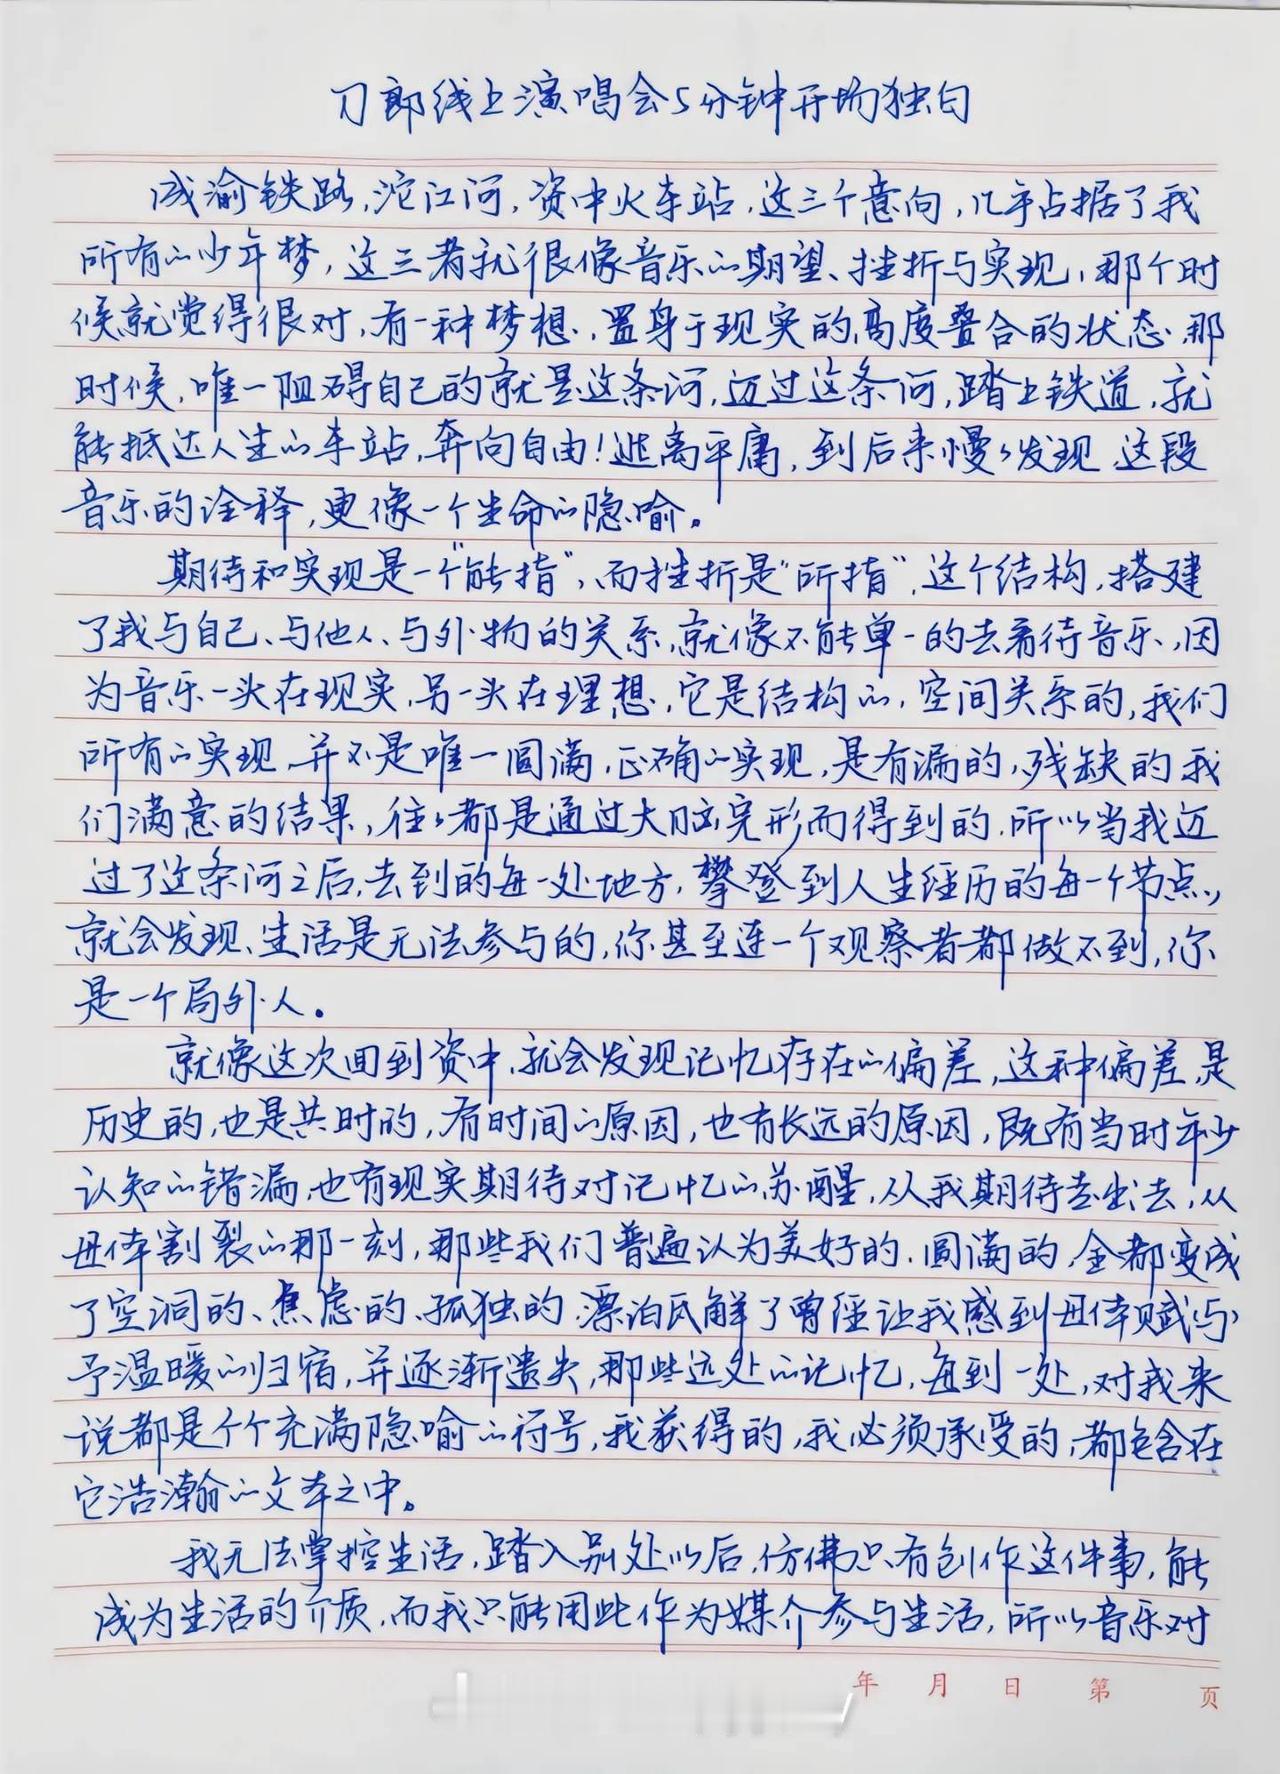 刀郎线上演唱会5分钟开场独白
成渝铁路，沱江河，资中火车站，这三个意向，几乎占据了我
所有的少年梦，这三者就很像音乐的期望、挫折与实现，那个时
候就觉得很对，有一种梦想，置身于现实的高度叠合的状态，那
时候，唯一阻碍自己的就是这条河，迈过这条河，踏上铁道，就
能抵达人生的车站，奔向自由！逃离平庸，到后来慢々发现，这段
音乐的诠释，更像一个生命的隐喻。
期待和实现是一个“能指”，而挫折是“所指”，这个结构，搭建
了我与自己、与他人、与外物的关系，就像不能单一的去看待音乐，因
为音乐一头在现实，另一头在理想，它是结构的，空间关系的，我们
所有的实现，并不是唯一圆满，正确的实现，是有漏的，残缺的我
们满意的结果，往々都是通过大脑完形而得到的，所以当我迈
过了这条河之后，去到的每一处地方，攀登到人生经历的每一个节点，
就会发现、生活是无法参与的，你甚至连一个观察者都做不到，你
是一个局外人。
就像这次回到资中，就会发现记忆存在的偏差，这种偏差，是
历史的，也是共时的，有时间的原因，也有长远的原因，既有当时年少
认知的错漏，也有现实期待对记忆的苏醒，从我期待走出去，从
母体割裂的那一刻，那些我们普遍认为美好的、圆满的，全都变成
了空洞的、焦虑的、孤独的，漂泊瓦解了曾经让我感到母体赋与
予温暖的归宿，并逐渐遗失，那些远处的记忆，每到一处，对我来
说都是个个充满隐喻的符号，我获得的，我必须承受的，都包含在
它浩瀚的文本之中。
我无法掌控生活，踏入别处以后，仿佛只有创作这件事，能
成为生活的介质，而我只能用此作为媒介参与生活，所以音乐对
年 月 日 第 页